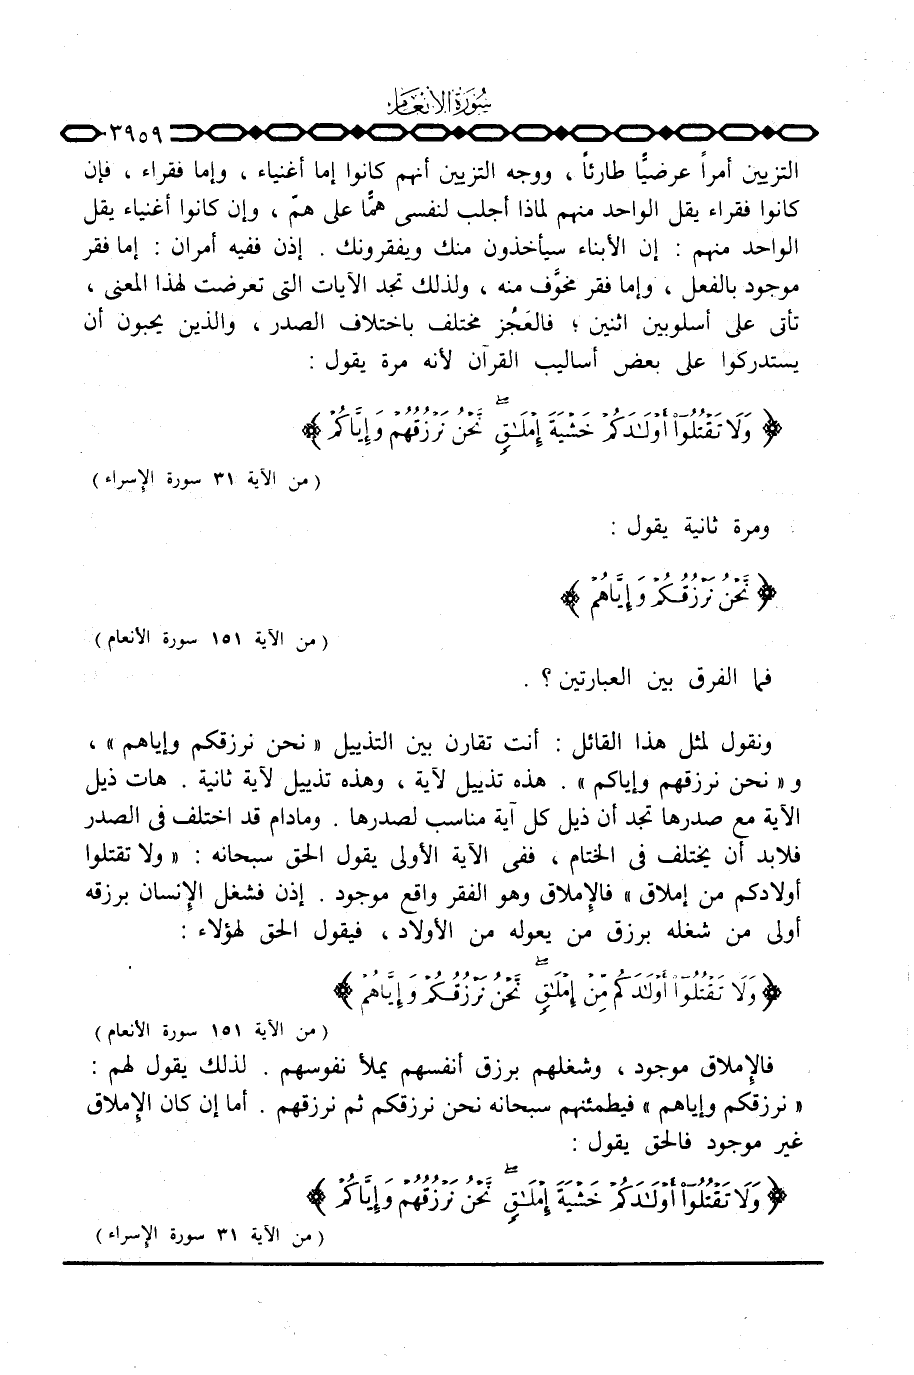 سورة الأنعام
٣٩٥٩
التزيين أمراً عرضيًّا طارئاً ، ووجه التزيين أنهم كانوا إما أغنياء ، وإما فقراء ، فإن
كانوا فقراء يقل الواحد منهم لماذا أجلب لنفسى همًّا على همّ ، وإن كانوا أغنياء يقل
الواحد منهم : إن الأبناء سيأخذون منك ويفقرونك . إذن ففيه أمران : إما فقر
موجود بالفعل ، وإما فقر مخوَّف منه ، ولذلك تجد الآيات التى تعرضت لهذا المعنى ،
تأتى على أسلوبين اثنين ؛ فالعَجُز مختلف باختلاف الصدر ، والذين يحبون أن
يستدركوا على بعض أساليب القرآن لأنه مرة يقول :
﴿ وَلَا تَقْتُلُوٓا۟ أَوْلَـٰدَكُمْ خَشْيَةَ إِمْلَـٰقٍۢ ۖ نَّحْنُ نَرْزُقُهُمْ وَإِيَّاكُمْ ﴾
( من الآية ٣١ سورة الإسراء )
ومرة ثانية يقول :
﴿ نَّحْنُ نَرْزُقُكُمْ وَإِيَّاهُمْ ﴾
( من الآية ١٥١ سورة الأنعام )
فما الفرق بين العبارتين ؟ .
ونقول لمثل هذا القائل : أنت تقارن بين التذييل « نحن نرزقكم وإياهم » ،
و « نحن نرزقهم وإياكم » . هذه تذييل لآية ، وهذه تذييل لآية ثانية . هات ذيل
الآية مع صدرها تجد أن ذيل كل آية مناسب لصدرها . ومادام قد اختلف فى الصدر
فلابد أن يختلف فى الختام ، ففى الآية الأولى يقول الحق سبحانه : « ولا تقتلوا
أولادكم من إملاق » فالإملاق وهو الفقر واقع موجود . إذن فشغل الإنسان برزقه
أولى من شغله برزق من يعوله من الأولاد ، فيقول الحق لهؤلاء :
﴿ وَلَا تَقْتُلُوٓا۟ أَوْلَـٰدَكُم مِّنْ إِمْلَـٰقٍۢ ۖ نَّحْنُ نَرْزُقُكُمْ وَإِيَّاهُمْ ﴾
( من الآية ١٥١ سورة الأنعام )
فالإملاق موجود ، وشغلهم برزق أنفسهم يملأ نفوسهم . لذلك يقول لهم :
« نرزقكم وإياهم » فيطمئنهم سبحانه نحن نرزقكم ثم نرزقهم . أما إن كان الإملاق
غير موجود فالحق يقول :
﴿ وَلَا تَقْتُلُوٓا۟ أَوْلَـٰدَكُمْ خَشْيَةَ إِمْلَـٰقٍۢ ۖ نَّحْنُ نَرْزُقُهُمْ وَإِيَّاكُمْ ﴾
( من الآية ٣١ سورة الإسراء )